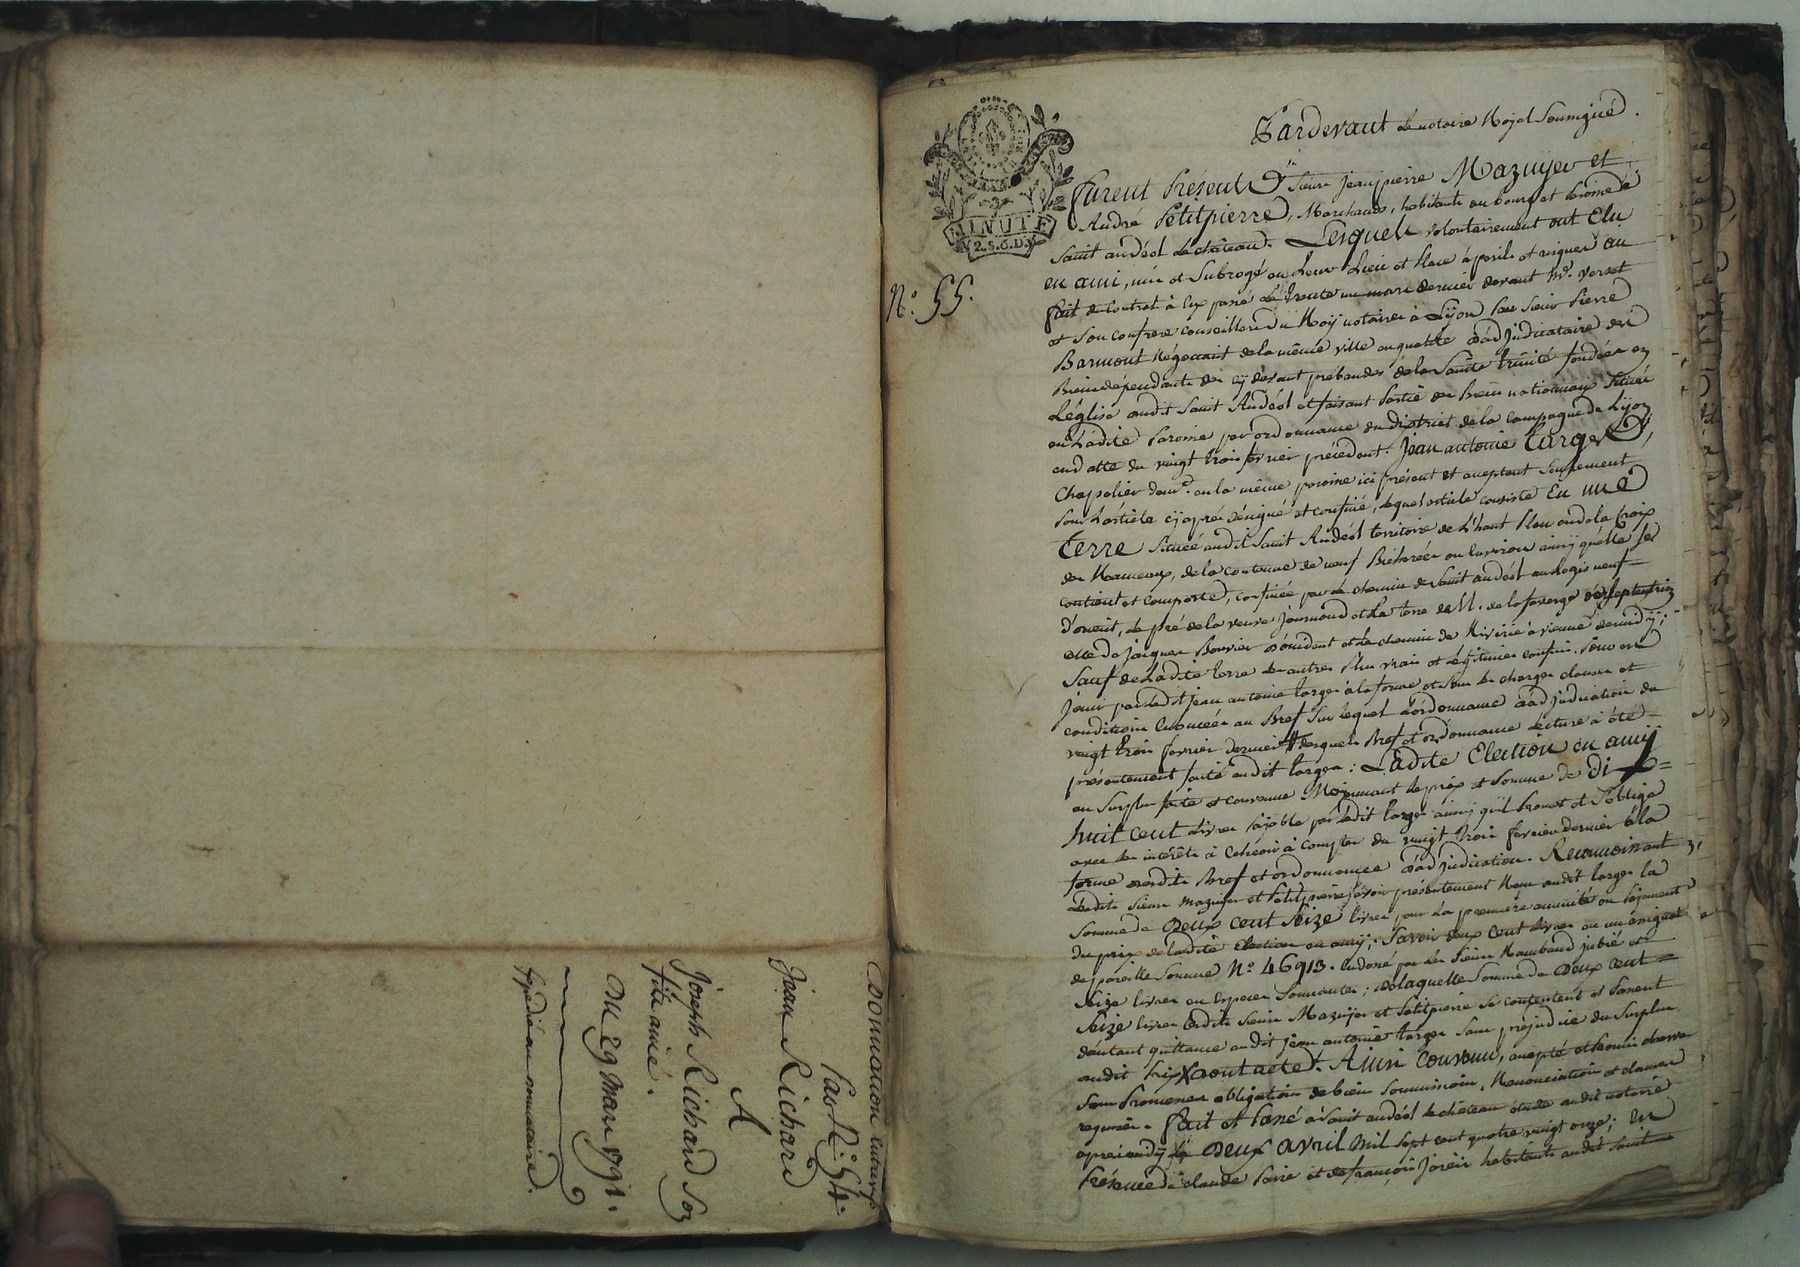 Donnation entrevifs
Par N.º 54.
Jean Richard
A
Joseph Richard Son
fils ainé.
Du 29 mars 1791.
Expédié au donnataire.
MINUTE
2.S.6.D.
N.º 55.
Pardevant le notaire Royal Soussigné.
Furent Présents Sieurs Jean pierre Mazuyer et
André Petitpierre, Marchands, habitants au bourg et paroisse de
Saint andéol le château. Lesquels volontairement ont Elu
en ami, mis et Subrogé en Leur Lieu et Place à perils et risques au
fait de Contrat à Eux passé Le trente un mars dernier devant Me. verset
et Son confrere conseillers du Roÿ notaires à Lÿon par Sieur Pierre
Barmont Négociant de la même ville en qualité d'adjudicataire des
Biens dépendants des cÿ devant prébandes de la Sainte trinité fondées en
L'église dudit Saint Andéol et faisant Partie des Biens nationnaux Situés
en Ladite Paroisse par ordonnance du District de la Campagne de Lÿon
en datte du vingt trois fevrier précédent. Jean antoine Targe,
Chapelier demt. en la même paroisse ici présent et aceptant Seulement
Pour L'article cÿ après désigné et confiné, lequel article consiste En une
terre Située audit Saint Andéol territoire de L'haut Plan ou de la Croix
des Rameaux, de la contenue de neuf Bicherées ou Environ ainsÿ quelle Se
contient et comporte, confinée par le chemin de Saint andéol au Logis neuf
d'orient, le pré de la veuve Journoud et La terre de M. de la faverge de Septentrion
celle de Jacques Bouvier d'occident et le chemin de Riverie à vienne de midÿ;
Sauf de Ladite terre les autres Plus vrais et Légitimes confins. Pour en
Jouir par Ledit Jean antoine targe à la forme et Sous les charges clauses et
conditions Enoncées au Bref Sur lequel L'ordonnance d'adjudication du
vingt trois fevrier dernier desquels Bref et ordonnance lecture à été
présentement faite audit targe: Ladite Election en amÿ
au Surplus faite et convenue Moÿennant le prix et Somme de dix
huit cent Livres Païable par Ledit targe ainsÿ qu'il Promet et S'oblige
avec les intérêts à Echéoir à compter du vingt trois fevrier dernier à la
forme desdits Bref et ordonnance d'adjudication. Reconnoissant
Lesdits Sieurs Mazuyer et Petitpierre avoir présentement Reçu dudit targe la
Somme de Deux cent Seize livres pour La premiere annuité ou Païement
du prix de ladite Election en amÿ; Savoir deux cent Livres en un assignat
de pareille Somme N.º 46913. Endossé par Les Sieurs Rambaud jubié et
Seize livres en Especes Sonnantes; de laquelle Somme de Deux cent
Seize livres lesdits Sieurs Mazuyer et Petitpierre Se contentent et Passent
d'autant quittance audit Jean antoine targe Sans préjudice du Surplus
dudit Prix dont acte. Ainsi Convenu, accepté et Promis observer
Sous Promesses obligation de biens Soumissions, Renonciation et clauses
requises. Fait et Passé à Saint andéol le château étude dudit notaire
après midÿ Le Deux avril mil Sept cent quatre vingt onze; En
Présence de claude et de françois habitants audit Saint